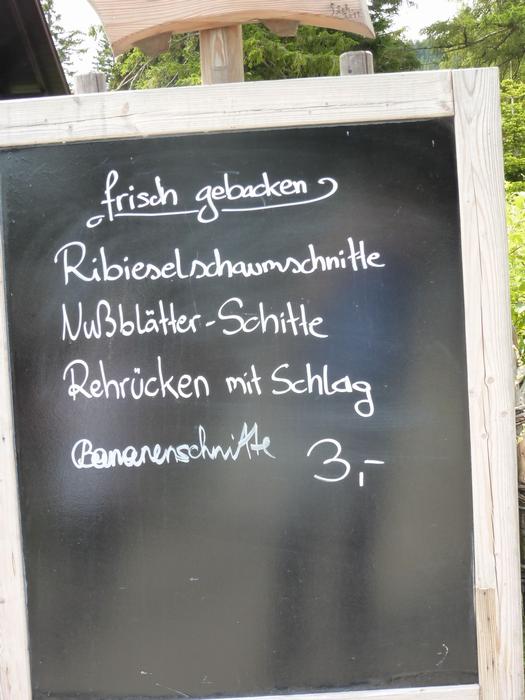 frisch gebacken
Ribieselschaumschnitte
Nußblätter-Schitte
Rehrücken mit Schlag
Bananenschnitte 3,-